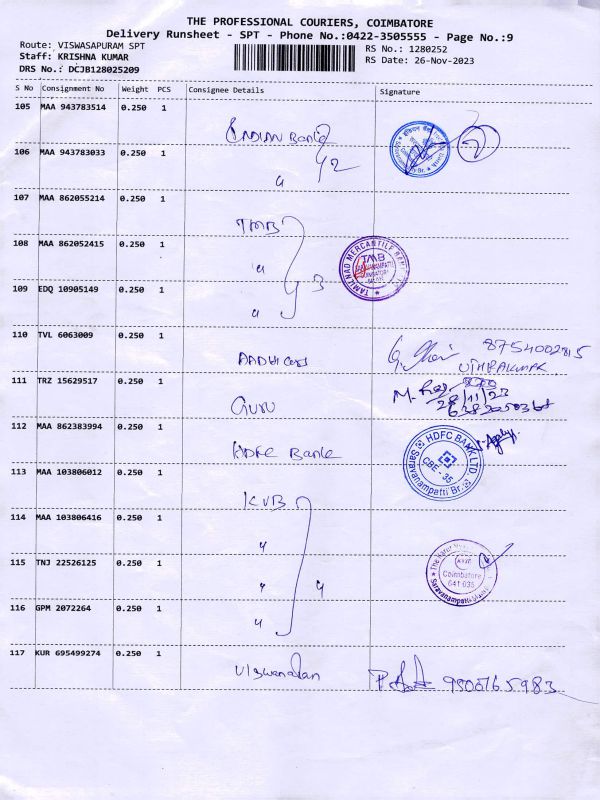 THE PROFESSIONAL COURIERS, COIMBATORE
Delivery Runsheet - SPT - Phone No.:0422-3505555 - Page No.:9
Route: VISWASAPURAM SPT
RS No.: 1280252
Staff: KRISHNA KUMAR
RS Date: 26-Nov-2023
DRS No.: DCJB128025209
S No Consignment No Weight PCS Consignee Details Signature
105 MAA 943783514 0.250 1
INDIAN Bank
106 MAA 943783033 0.250 1
2
107 MAA 862055214 0.250 1
TMB
108 MAA 862052415 0.250 1
TAMILNAD MERCANTILE BANK
TMB
3
109 EDQ 10905149 0.250 1
110 TVL 6063009 0.250 1
8754002815
UTHRAKUMAR
111 TRZ 15629517 0.250 1
M.
28/11/23
GURU
112 MAA 862383994 0.250 1
HDFC Bank
HDFC BANK LTD
CBE - 35
Saravanampatti Br.
113 MAA 103806012 0.250 1
KVB
114 MAA 103806416 0.250 1
4
115 TNJ 22526125 0.250 1
Coimbatore
641 035
116 GPM 2072264 0.250 1
117 KUR 695499274 0.250 1
Viswanathan